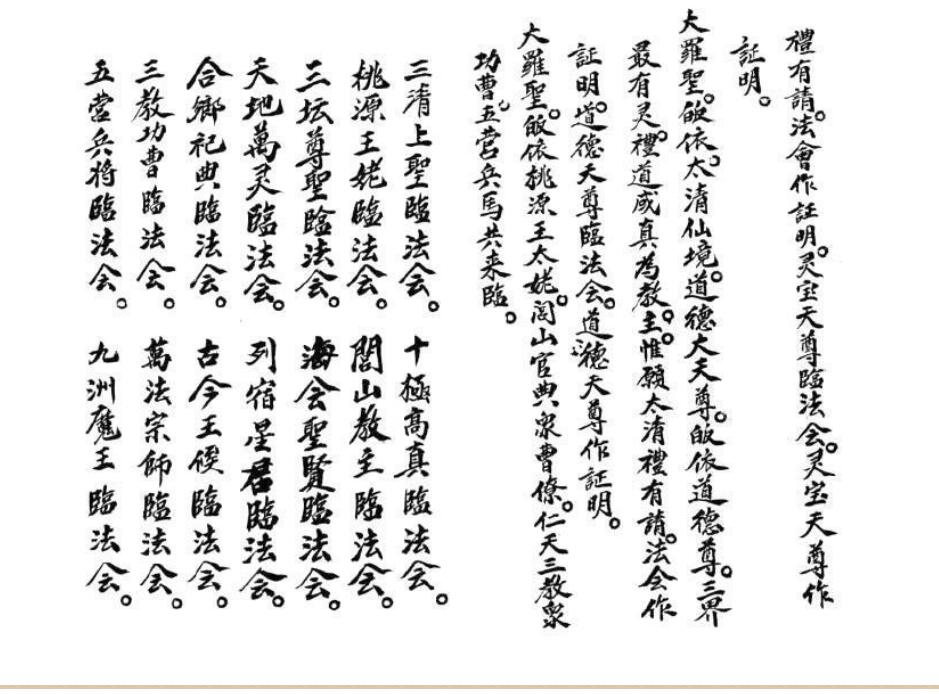 禮有請。法會作証明。灵宝天尊臨法会。灵宝天尊作
証明。
大羅聖。皈依太清仙境。道德大天尊。皈依道德尊。三界
最有灵。禮道咸真為教主。惟願太清禮有請。法会作
証明。道德天尊臨法会。道德天尊作証明。
大羅聖。皈依桃源王太姥。闾山官典衆曹僚。仁天三教衆
功曹。五营兵馬共来臨。
三清上聖臨法会。十極高真臨法会。
桃源王姥臨法会。閭山教主臨法会。
三坛尊聖臨法会。海会聖賢臨法会。
天地萬灵臨法会。列宿星君臨法会。
合鄉祀典臨法会。古今王侯臨法会。
三教功曹臨法会。萬法宗師臨法会。
五营兵将臨法会。九洲魔王臨法会。